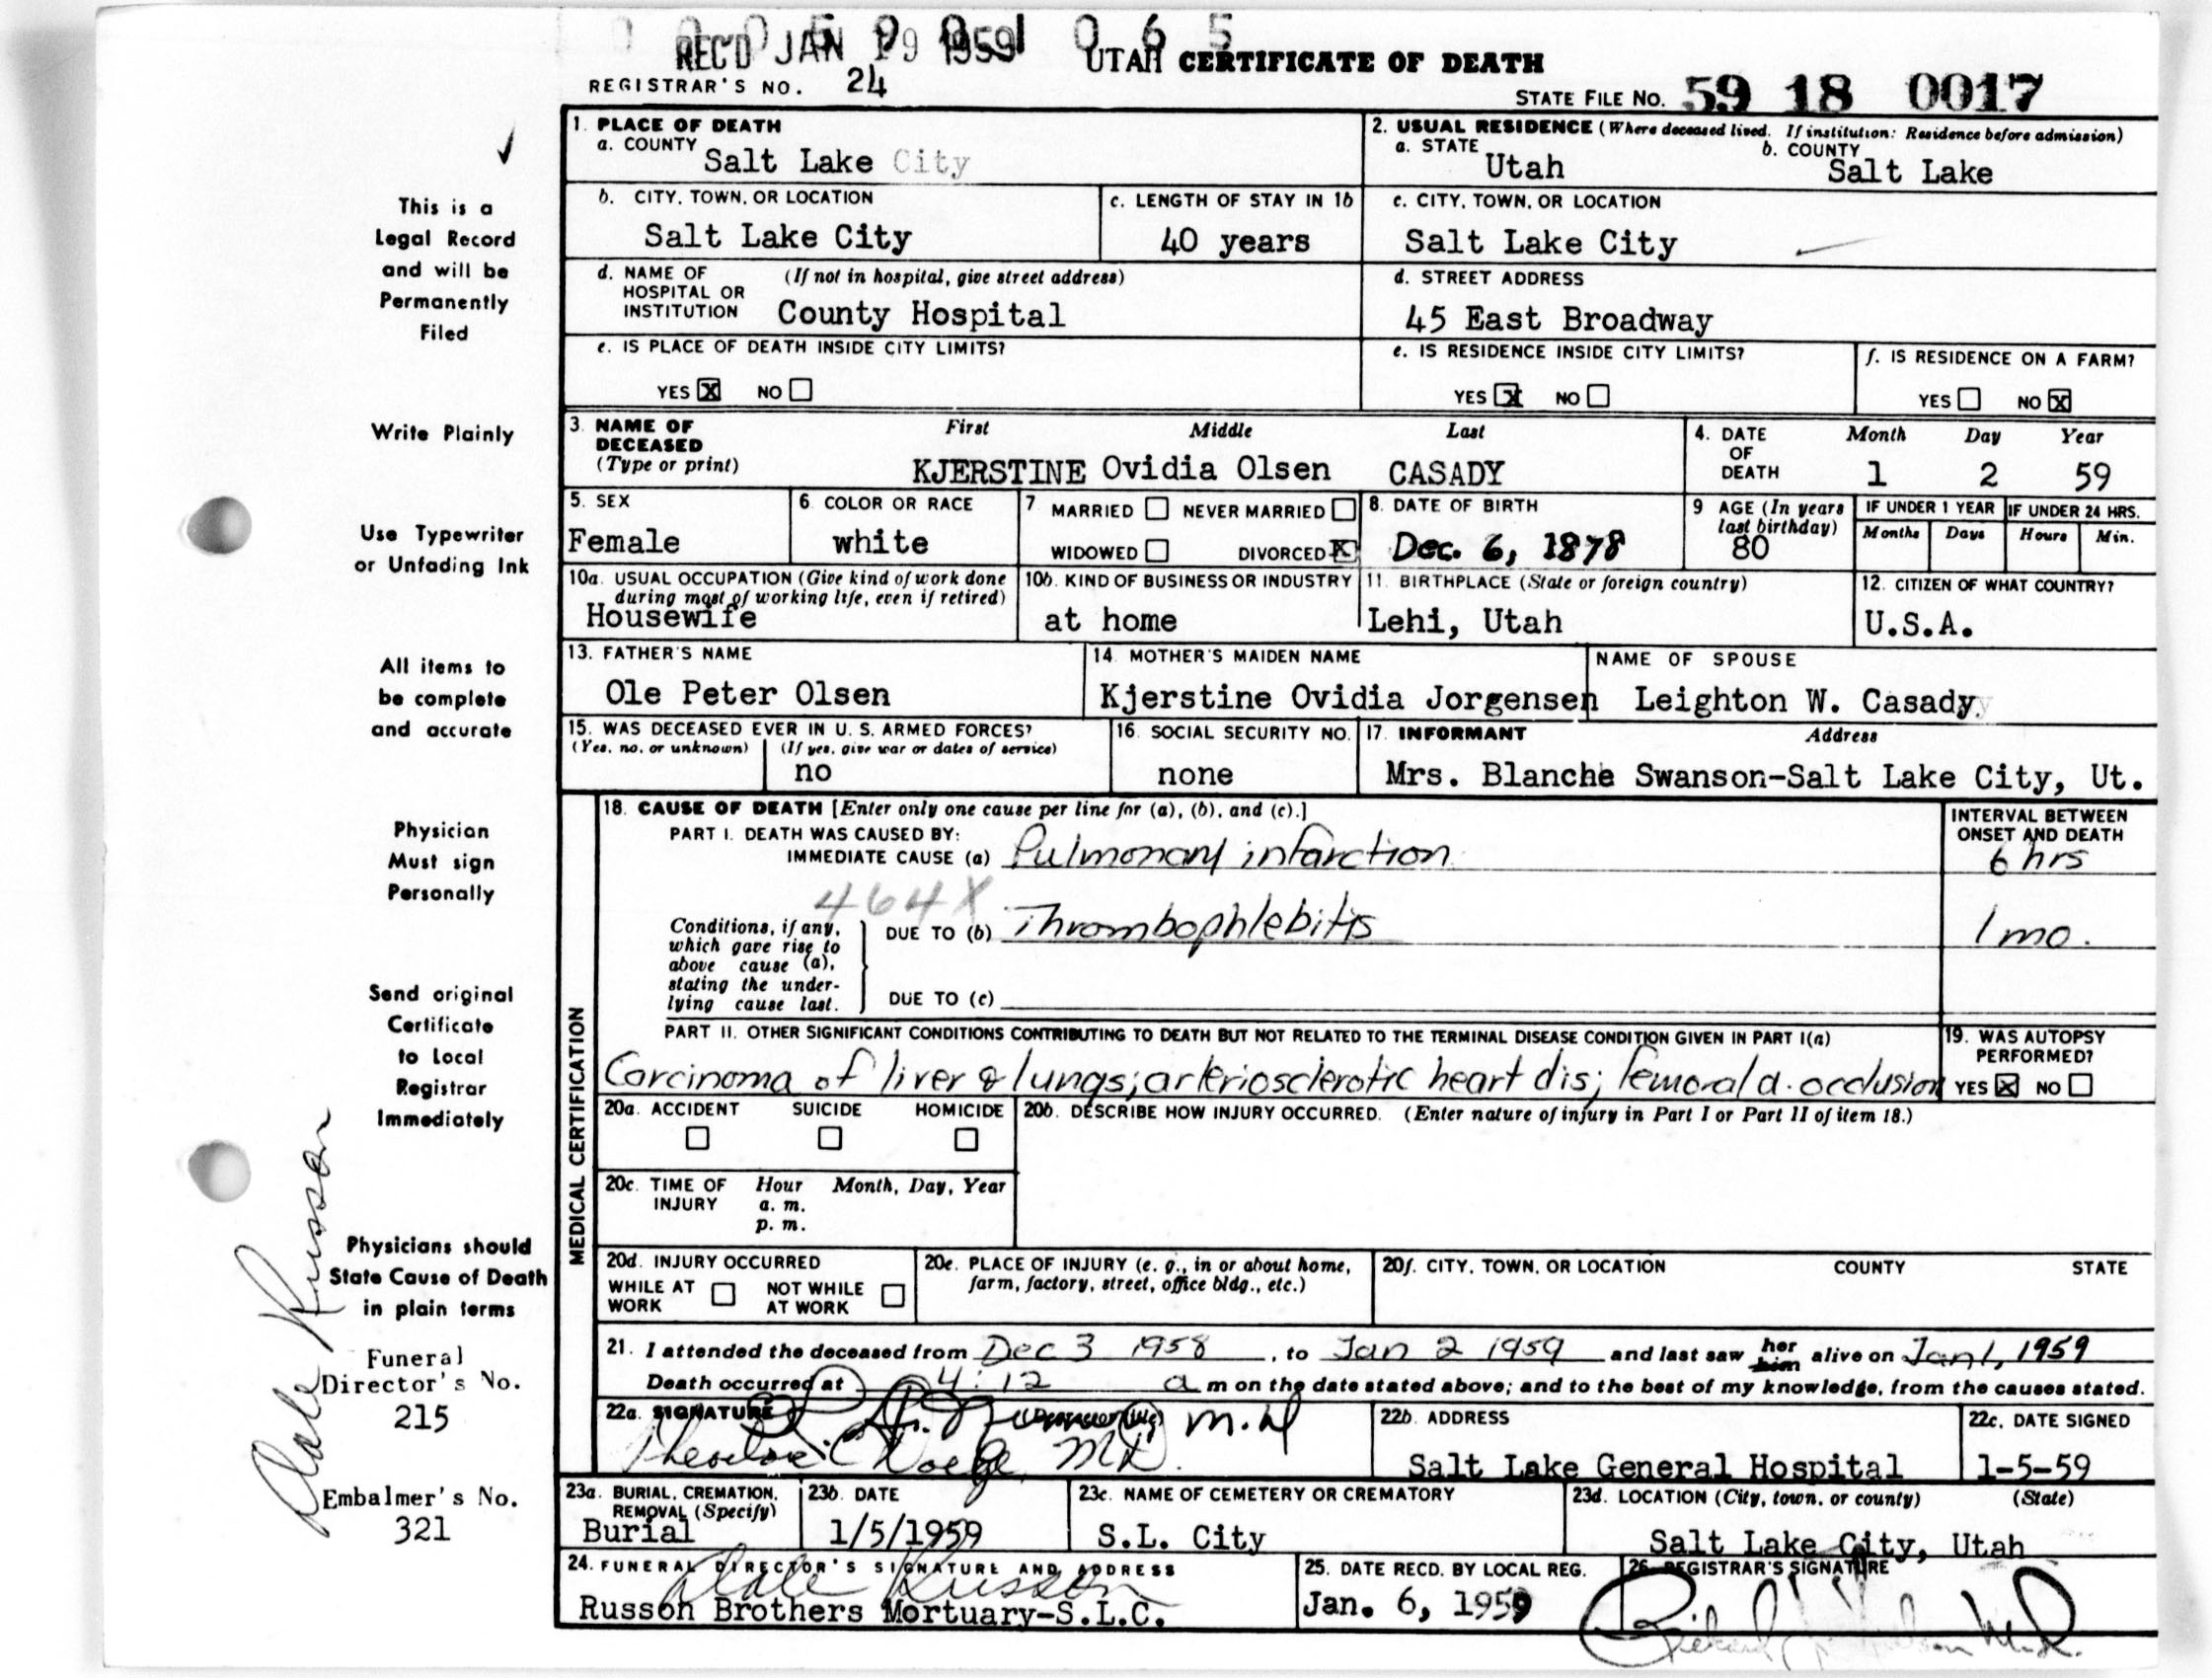 REC'D JAN 19 1959
UTAH CERTIFICATE OF DEATH
REGISTRAR'S NO. 24
STATE FILE NO. 59 18 0017
This is a
Legal Record
and will be
Permanently
Filed
Write Plainly
Use Typewriter
or Unfading Ink
All items to
be complete
and accurate
Physician
Must sign
Personally
Send original
Certificate
to Local
Registrar
Immediately
Physicians should
State Cause of Death
in plain terms
Funeral
Director's No.
215
Embalmer's No.
321
Dale Russon
1. PLACE OF DEATH
a. COUNTY Salt Lake City
2. USUAL RESIDENCE (Where deceased lived. If institution: Residence before admission)
a. STATE Utah b. COUNTY Salt Lake
b. CITY, TOWN, OR LOCATION
Salt Lake City
c. LENGTH OF STAY IN 1b
40 years
c. CITY, TOWN, OR LOCATION
Salt Lake City
d. NAME OF HOSPITAL OR INSTITUTION (If not in hospital, give street address)
County Hospital
d. STREET ADDRESS
45 East Broadway
e. IS PLACE OF DEATH INSIDE CITY LIMITS?
YES X NO
e. IS RESIDENCE INSIDE CITY LIMITS?
YES X NO
f. IS RESIDENCE ON A FARM?
YES NO X
3. NAME OF DECEASED (Type or print) First Middle Last
KJERSTINE Ovidia Olsen CASADY
4. DATE OF DEATH Month Day Year
1 2 59
5. SEX
Female
6. COLOR OR RACE
white
7 MARRIED NEVER MARRIED
WIDOWED DIVORCED X
8. DATE OF BIRTH
Dec. 6, 1878
9 AGE (In years last birthday)
80
IF UNDER 1 YEAR IF UNDER 24 HRS.
Months Days Hours Min.
10a. USUAL OCCUPATION (Give kind of work done during most of working life, even if retired)
Housewife
10b. KIND OF BUSINESS OR INDUSTRY
at home
11. BIRTHPLACE (State or foreign country)
Lehi, Utah
12. CITIZEN OF WHAT COUNTRY?
U.S.A.
13. FATHER'S NAME
Ole Peter Olsen
14. MOTHER'S MAIDEN NAME
Kjerstine Ovidia Jorgensen
NAME OF SPOUSE
Leighton W. Casady
15. WAS DECEASED EVER IN U. S. ARMED FORCES?
(Yes, no, or unknown) (If yes, give war or dates of service)
no
16. SOCIAL SECURITY NO.
none
17. INFORMANT Address
Mrs. Blanche Swanson-Salt Lake City, Ut.
MEDICAL CERTIFICATION
18. CAUSE OF DEATH [Enter only one cause per line for (a), (b), and (c).]
INTERVAL BETWEEN ONSET AND DEATH
PART I. DEATH WAS CAUSED BY:
IMMEDIATE CAUSE (a) Pulmonary infarction 6 hrs
464X
Conditions, if any, which gave rise to above cause (a), stating the underlying cause last.
DUE TO (b) Thrombophlebitis 1 mo.
DUE TO (c)
PART II. OTHER SIGNIFICANT CONDITIONS CONTRIBUTING TO DEATH BUT NOT RELATED TO THE TERMINAL DISEASE CONDITION GIVEN IN PART I(a)
Carcinoma of liver & lungs; arteriosclerotic heart dis; femoral a. occlusion
19. WAS AUTOPSY PERFORMED?
YES X NO
20a. ACCIDENT SUICIDE HOMICIDE
20b. DESCRIBE HOW INJURY OCCURRED. (Enter nature of injury in Part I or Part II of item 18.)
20c. TIME OF INJURY Hour Month, Day, Year
a. m.
p. m.
20d. INJURY OCCURRED
WHILE AT WORK NOT WHILE AT WORK
20e. PLACE OF INJURY (e. g., in or about home, farm, factory, street, office bldg., etc.)
20f. CITY, TOWN, OR LOCATION COUNTY STATE
21. I attended the deceased from Dec 3 1958, to Jan 2 1959 and last saw her him alive on Jan 1, 1959
Death occurred at 4:12 a m on the date stated above; and to the best of my knowledge, from the causes stated.
22a. SIGNATURE
M.D
Theodore C MD.
22b. ADDRESS
Salt Lake General Hospital
22c. DATE SIGNED
1-5-59
23a. BURIAL, CREMATION, REMOVAL (Specify)
Burial
23b. DATE
1/5/1959
23c. NAME OF CEMETERY OR CREMATORY
S.L. City
23d. LOCATION (City, town, or county) (State)
Salt Lake City, Utah
24. FUNERAL DIRECTOR'S SIGNATURE AND ADDRESS
Dale Russon
Russon Brothers Mortuary-S.L.C.
25. DATE RECD. BY LOCAL REG.
Jan. 6, 1959
26. REGISTRAR'S SIGNATURE